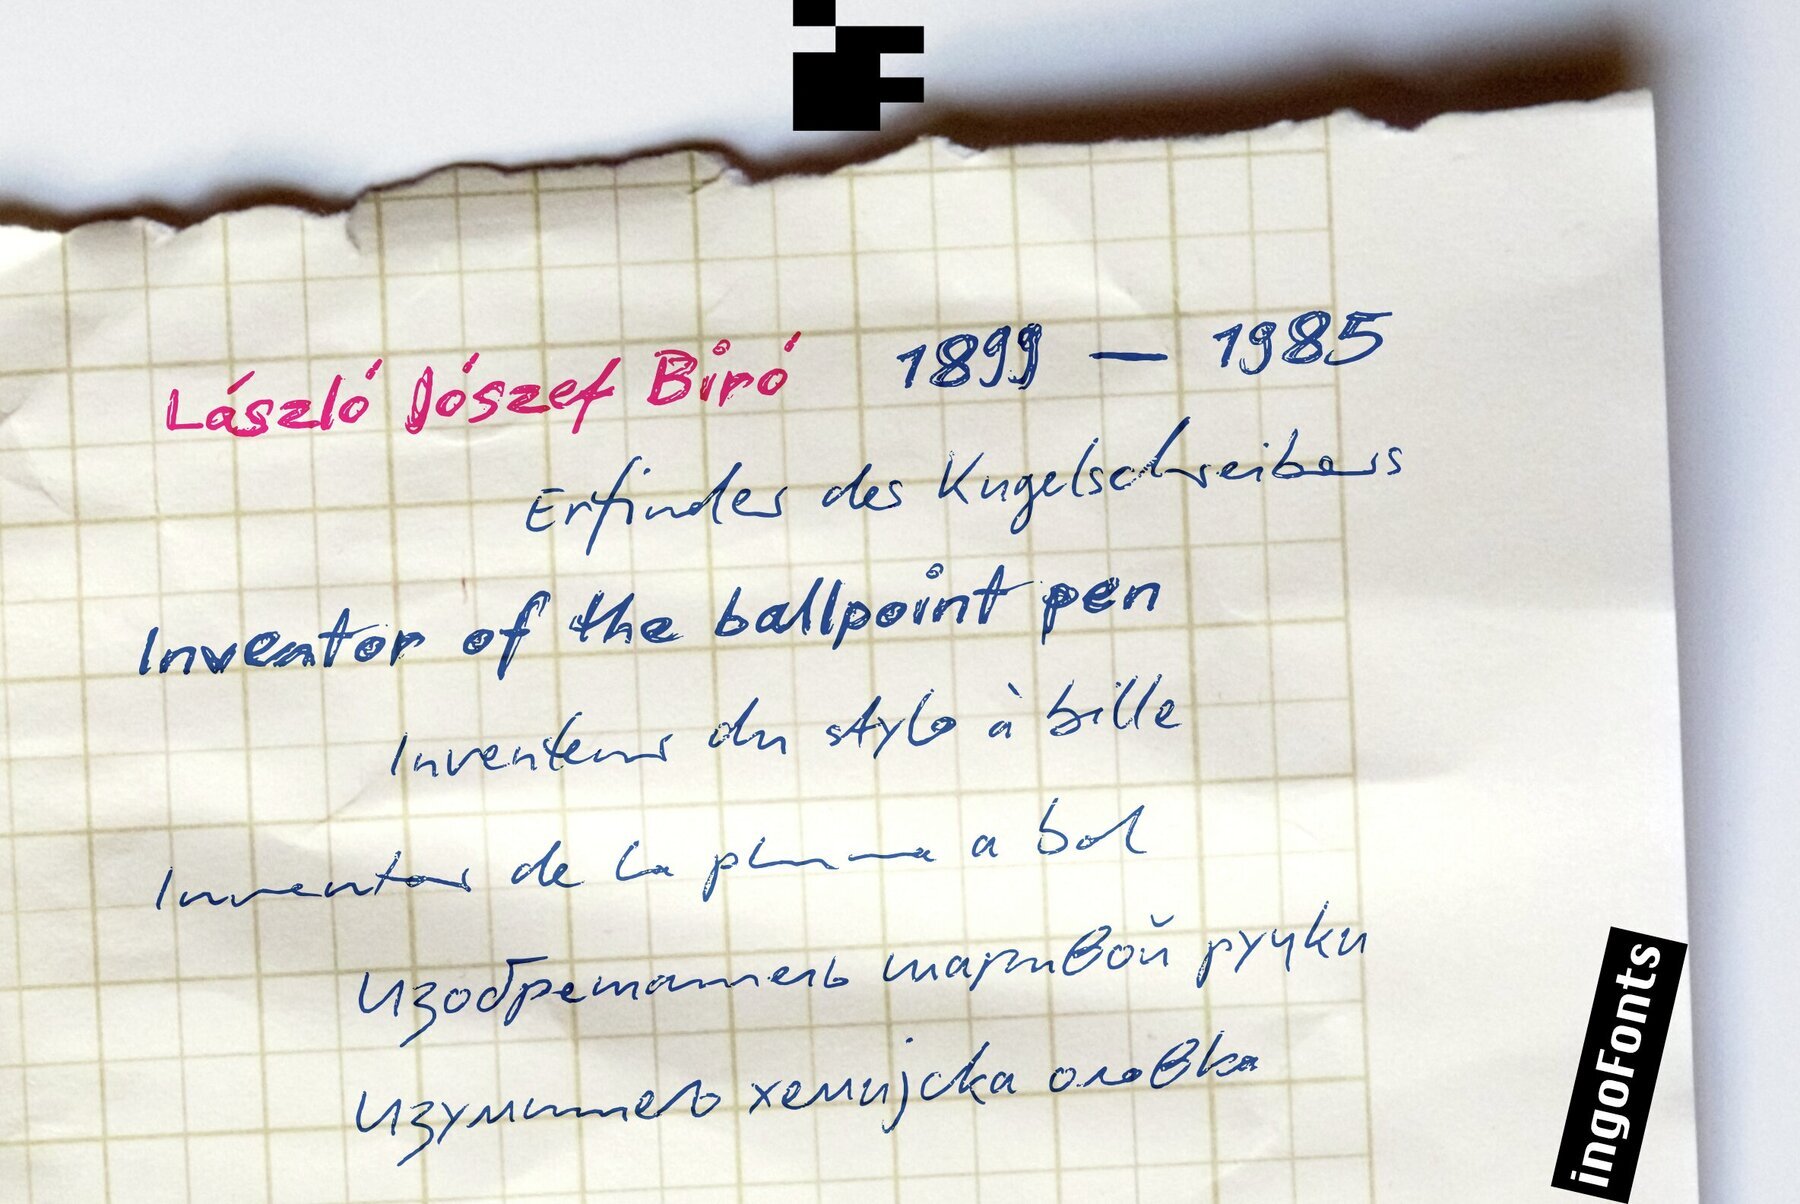 László Jószef Biró 1899 — 1985
Erfinder des Kugelschreibers
Inventor of the ballpoint pen
Inventeur du stylo à bille
Inventor de la pluma a bol
Изобретатель шариковой ручки
Изумитељ хемијска оловка
ingoFonts